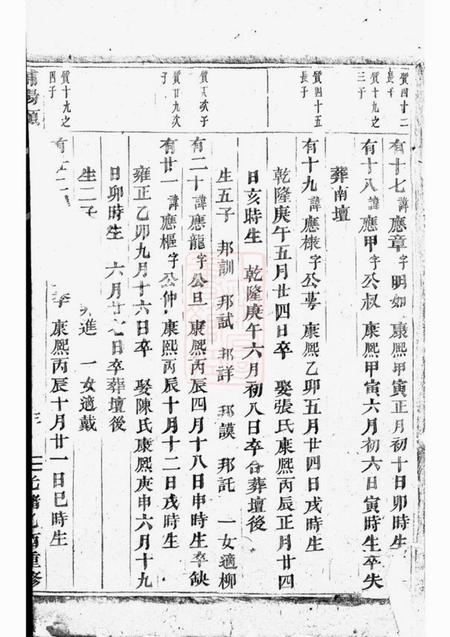 質四十二
長子
有十七諱應章字明如 康熙甲寅正月初十日卯時生
質十九之
三子
有十八諱應甲字公叔 康熙甲寅六月初六日寅時生卒失
葬南壇
質四十五
長子
有十九諱應 字公 康熙乙卯五月廿四日戌時生
乾隆庚午五月廿四日卒 娶張氏康熙丙辰正月廿四
日亥時生 乾隆庚午六月初八日卒合葬壇後
生五子 邦訓 邦試 邦詳 邦謨 邦託 一女適柳
質 次子
有二十諱應龍字公旦 康熙丙辰四月十八日申時生卒缺
質廿九次
子
有廿一諱應樞字公仲 康熙丙辰十月十二日戌時生
雍正乙卯九月十六日卒 娶陳氏康熙庚申六月十九
日卯時生 六月廿 日卒葬壇後
生二子 進 一女適戴
質十九之
四子
有 康熙丙辰十月廿一日巳時生
重修